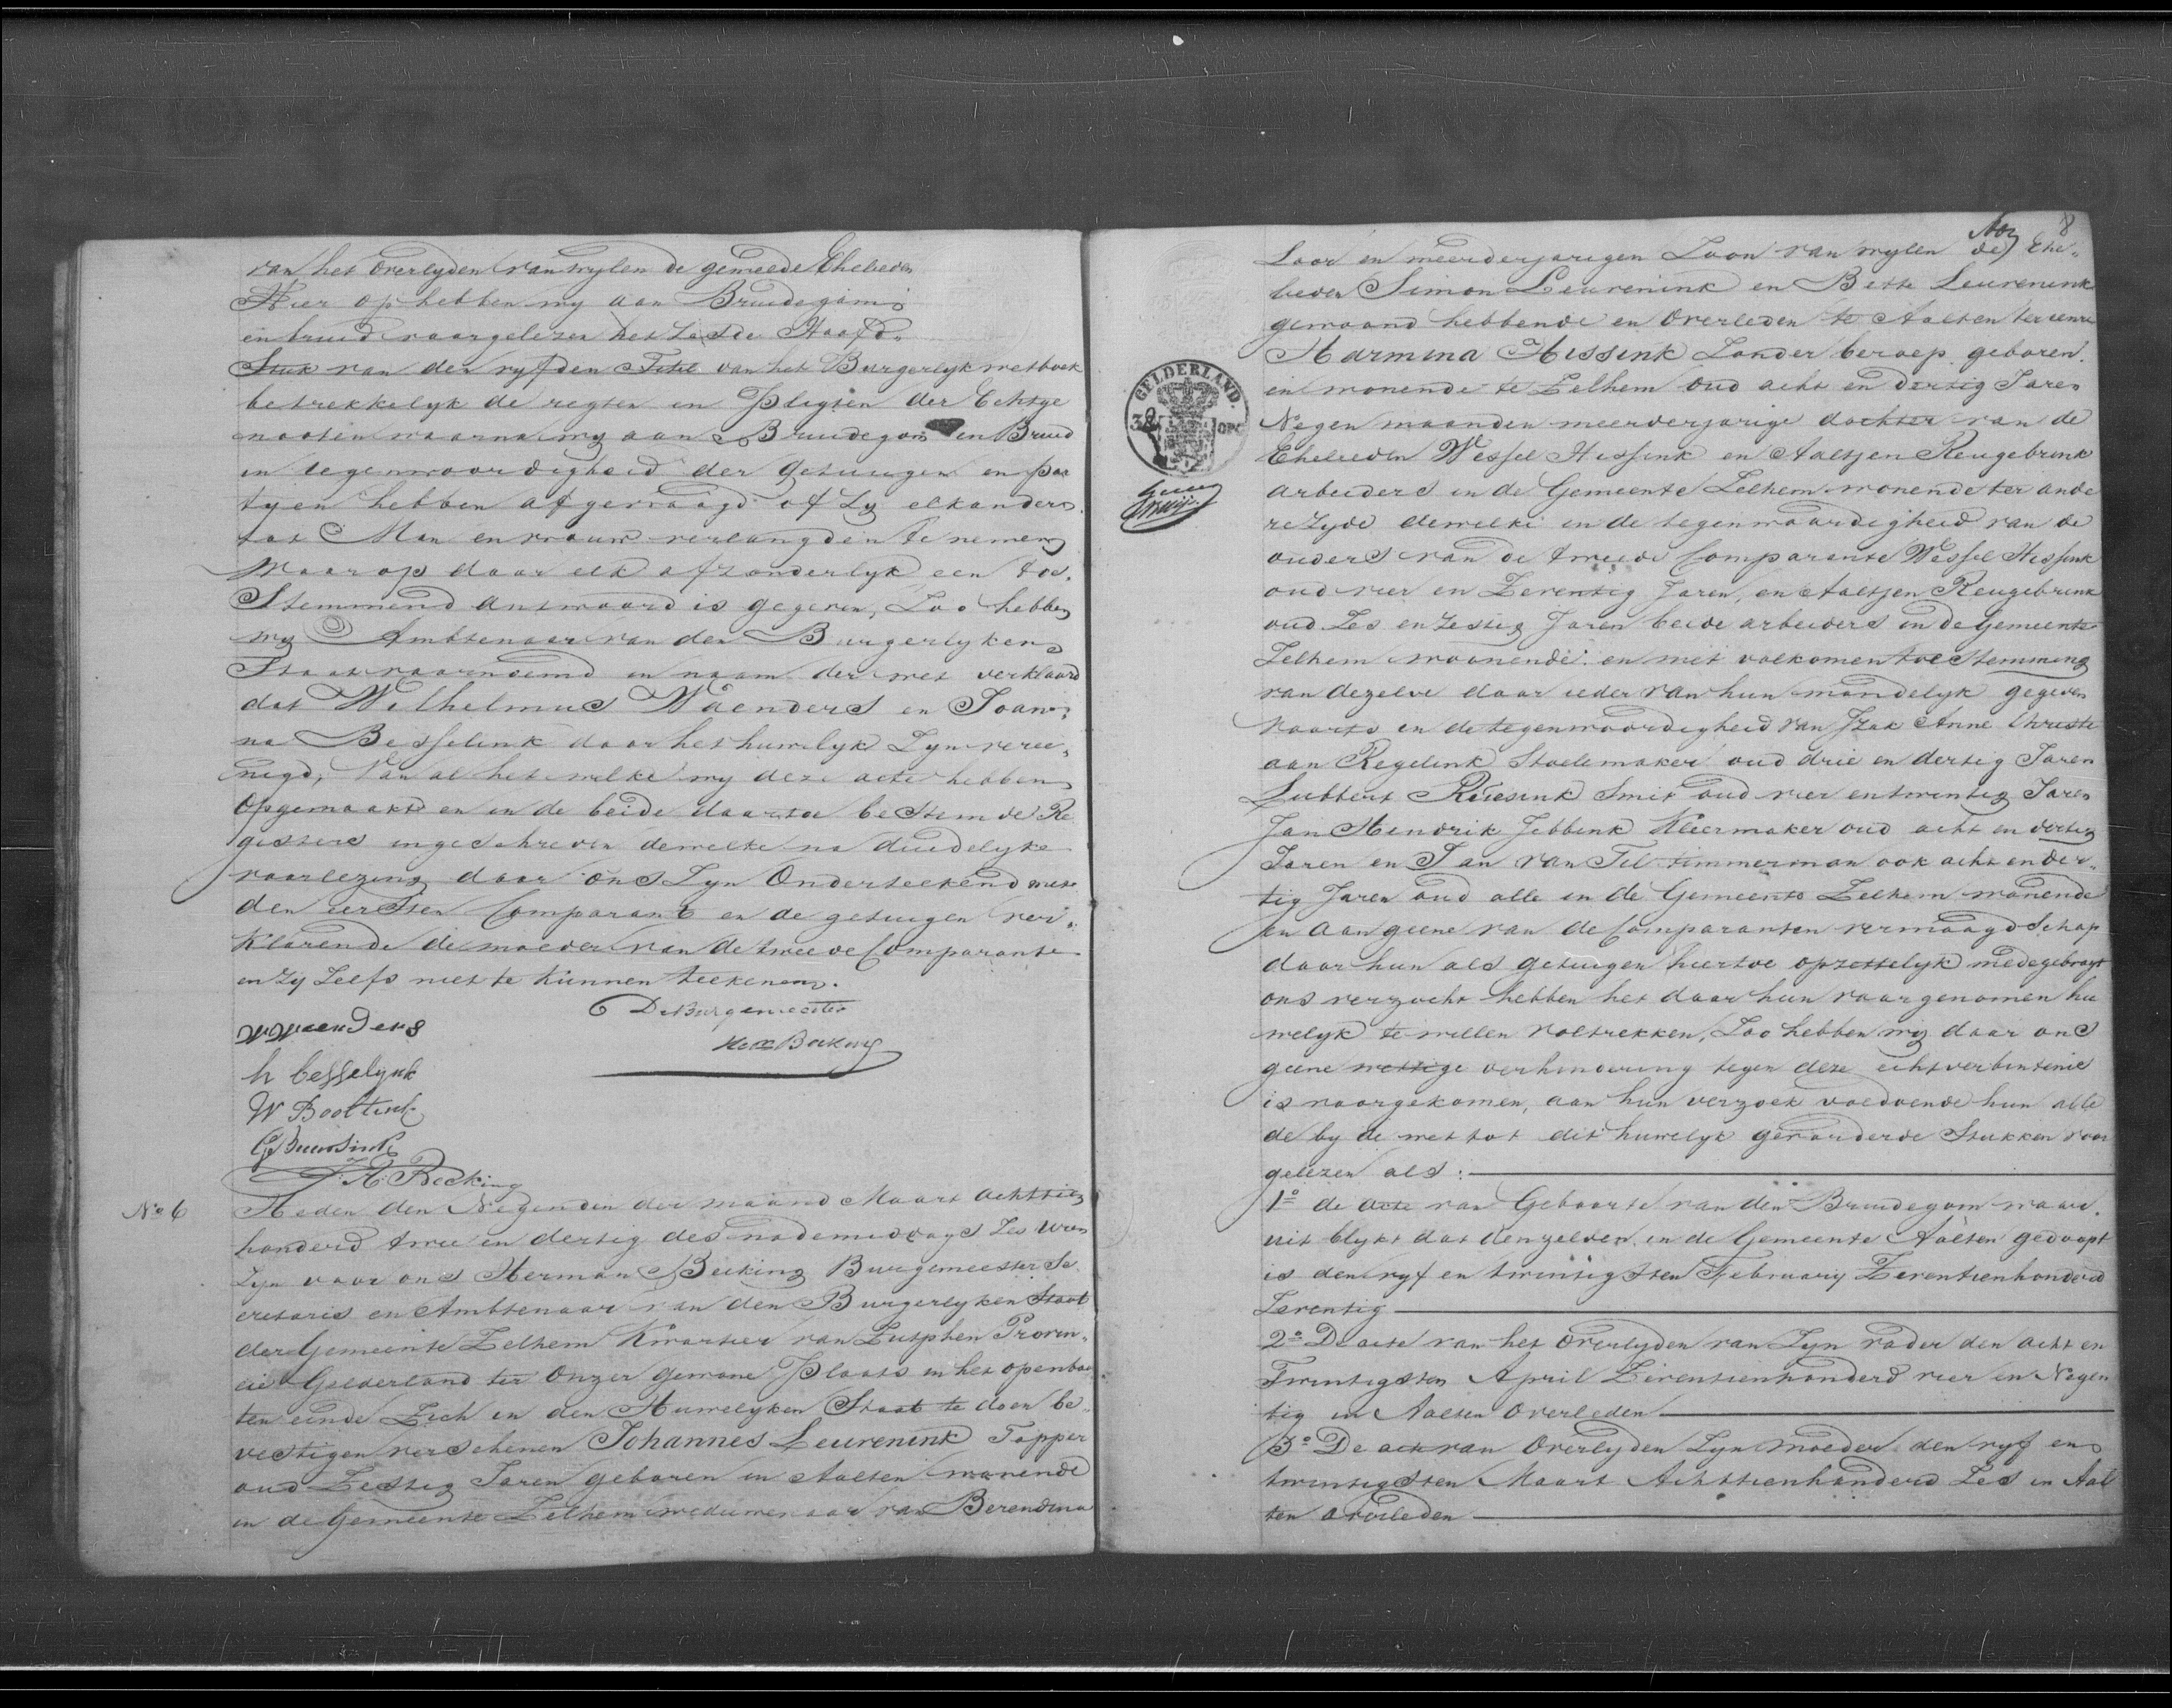 van het overlyden van wylen de gemeede Ehelieden
Hier op hebben wy aan Bruidegom
en bruid voorgelezen het zesde Hoofd„
Stuk van den vyfden Titel van het Burgerlyk wetboek
betrekkelyk de regten en Pligten der Echtge
nooten waarna wy aan Bruidegom en Bruid
in tegenwoordigheid der getuigen en par
tyen hebben afgevraagd of zy elkanders
tot Man en vrouw verlangden te nemen
Waar op door elk afzonderlyk een toe„
Stemmend antwoord is gegeven, Zoo hebben
wy Ambtenaar van den Burgerlyken
Staat voornoemd in naam der wet verklaard
dat Wilhelmus Waenders en Joan„
na Besselink door het huwelyk Zyn veree„
nigd, Van al het welke wy deze acte hebben
Opgemaakt en in de beide daartoe bestemde Re
gisters ingeschreven dewelke na duidelyke
voorlezing door ons Zyn Onderteekend met
den eersten Comparant en de getuigen ver„
Klarende de moeder van de tweede Comparante
en zy Zelfs niet te kunnen teekenen.
De Burgemeester
Herm Becking
W Waenders
h besselynk
W Boottink
G Buunsink
J: H: Becking
No 6
Heden den Negenden der maand Maart achttien
honderd twee en dertig des nademiddags Zes uren
Zyn voor ons Herman Becking Burgemeester Se„
cretaris en Ambtenaar van den Burgerlyken Staat
der Gemeente Zelhem Kwartier van Zutphen Provin„
cie Gelderland ter Onzer gewone Plaats in het openbaar
ten einde Zich in den Huwelyken Staat te doen be„
vestigen verschenen Johannes Leurenink Tapper
oud Zestig Jaren geboren in Aalten wonende
in de Gemeente Zelhem weduwenaar van Berendina
8
Loor en meerderjarigen Zoon van wylen de Ehe„
lieden Simon Leurenink en Bette Leurenink
gewoond hebbende en Overleden te Aalten ter eenre
Harmina Hissink Zonder beroep geboren
en wonende te Zelhem oud acht en dertig Jaren
Negen maanden meerderjarige dochter van de
Ehelieden Wessel Hissink en Aaltjen Reugebrink
arbeiders in de Gemeente Zelhem wonende ter ande
re Zyde dewelke in de tegenwoordigheid van de
ouders van de tweede Comparante Wessel Hissink
oud vier en Zeventig Jaren, en Aaltjen Reugebrink
oud Zes en Zestig Jaren beide arbeiders in de Gemeente
Zelhem woonende en met volkomen toestemming
van dezelve door ieder van hun mondelyk gegeven
Voorts en de tegenwoordigheid van Izak Anne Christi
aan Regelink Stoelemaker oud drie en dertig Jaren
Lubbert Ruesink Smit oud vier en twintig Jaren
Jan Hendrik Jebbink Kleermaker oud acht en dertig
Jaren en Jan van Til timmerman ook acht en der„
tig Jaren oud alle in de Gemeente Zelhem wonende
en aan geene van de Comparanten vermaagdschap
door hun als getuigen hiertoe opzettelyk medegebragt
ons verzocht hebben het door hun voorgenomen hu
welyk te willen voltrekken, Zoo hebben wy daar ons
geene wettige verhindering tegen deze echtverbintenis
is voorgekomen, aan hun verzoek voldoende hun alle
de by de wet tot dit huwelyk gevorderde Stukken voor
gelezen als:
1o de acte van Geboorte van den Bruidegom waar„
uit blykt dat denzelven in de Gemeente Aalten gedoopt
is den vyf en twintigsten February Zeventienhonderd
Zeventig
2o De acte van het overlyden van Zyn vader den acht en
Twintigsten April Zeventienhonderd vier en Negen
tig in Aalten Overleden
3o De acte van Overlyden Zyn moeder den vyf en
twintigsten Maart Achttienhonderd Zes in Aal
ten Overleden
GELDERLAND.
OPC